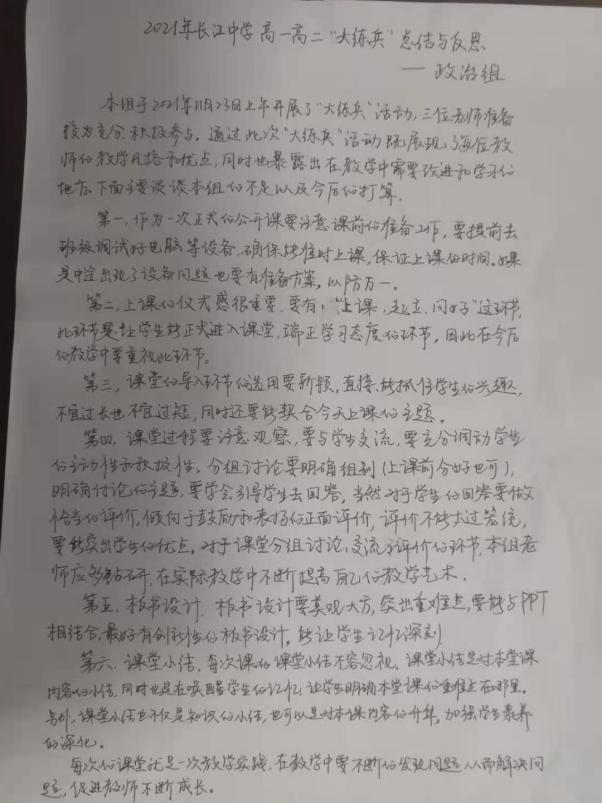 2021年长江中学高一高二“大练兵”总结与反思
——政治组
本组于2021年11月23日上午开展了“大练兵”活动,三位老师准备
较为充分,积极参与。通过此次“大练兵”活动既展现了每位教
师的教学风格和优点,同时也暴露出在教学中需要改进和学习的
地方。下面主要谈谈本组的不足以及今后的打算.
第一,作为一次正式的公开课要注意课前的准备工作,要提前去
班级调试好电脑等设备,确保能准时上课,保证上课的时间。如果
是中途出现了设备问题也要有准备方案,以防万一。
第二,上课的仪式感很重要,要有:“上课、起立、问好”这环节,
此环节是让学生能正式进入课堂,端正学习态度的环节。因此在今后
的教学中要重视此环节。
第三,课堂的导入环节的选用要新颖,直接,能抓住学生的兴趣,
不宜过长也不宜过短,同时还要能契合今天上课的主题。
第四,课堂过程要注意观察,要与学生交流,要充分调动学生
的主动性和积极性。分组讨论要明确组别(上课前分好也可),
明确讨论的主题,要学会引导学生去回答,当然对于学生的回答要做
恰当的评价,倾向于鼓励和表扬的正面评价,评价不能太过笼统,
要能突出学生的优点。对于课堂分组讨论、交流与评价的环节,本组老
师应多钻研,在实际教学中不断提高自己的教学艺术.
第五,板书设计,板书设计要美观大方,突出重难点,要能与PPT
相结合,最好有创新性的板书设计,能让学生记忆深刻
第六,课堂小结,每次课的课堂小结不容忽视,课堂小结是对本堂课
内容的小结,同时也是在唤醒学生的记忆,让学生明确本堂课的重难点在哪里.
另外,课堂小结也不仅是知识的小结,也可以是对本课内容的升华,加强学生素养
的深化。
每次的课堂就是一次教学实践,在教学中要不断的发现问题从而解决问
题,促进教师不断成长。